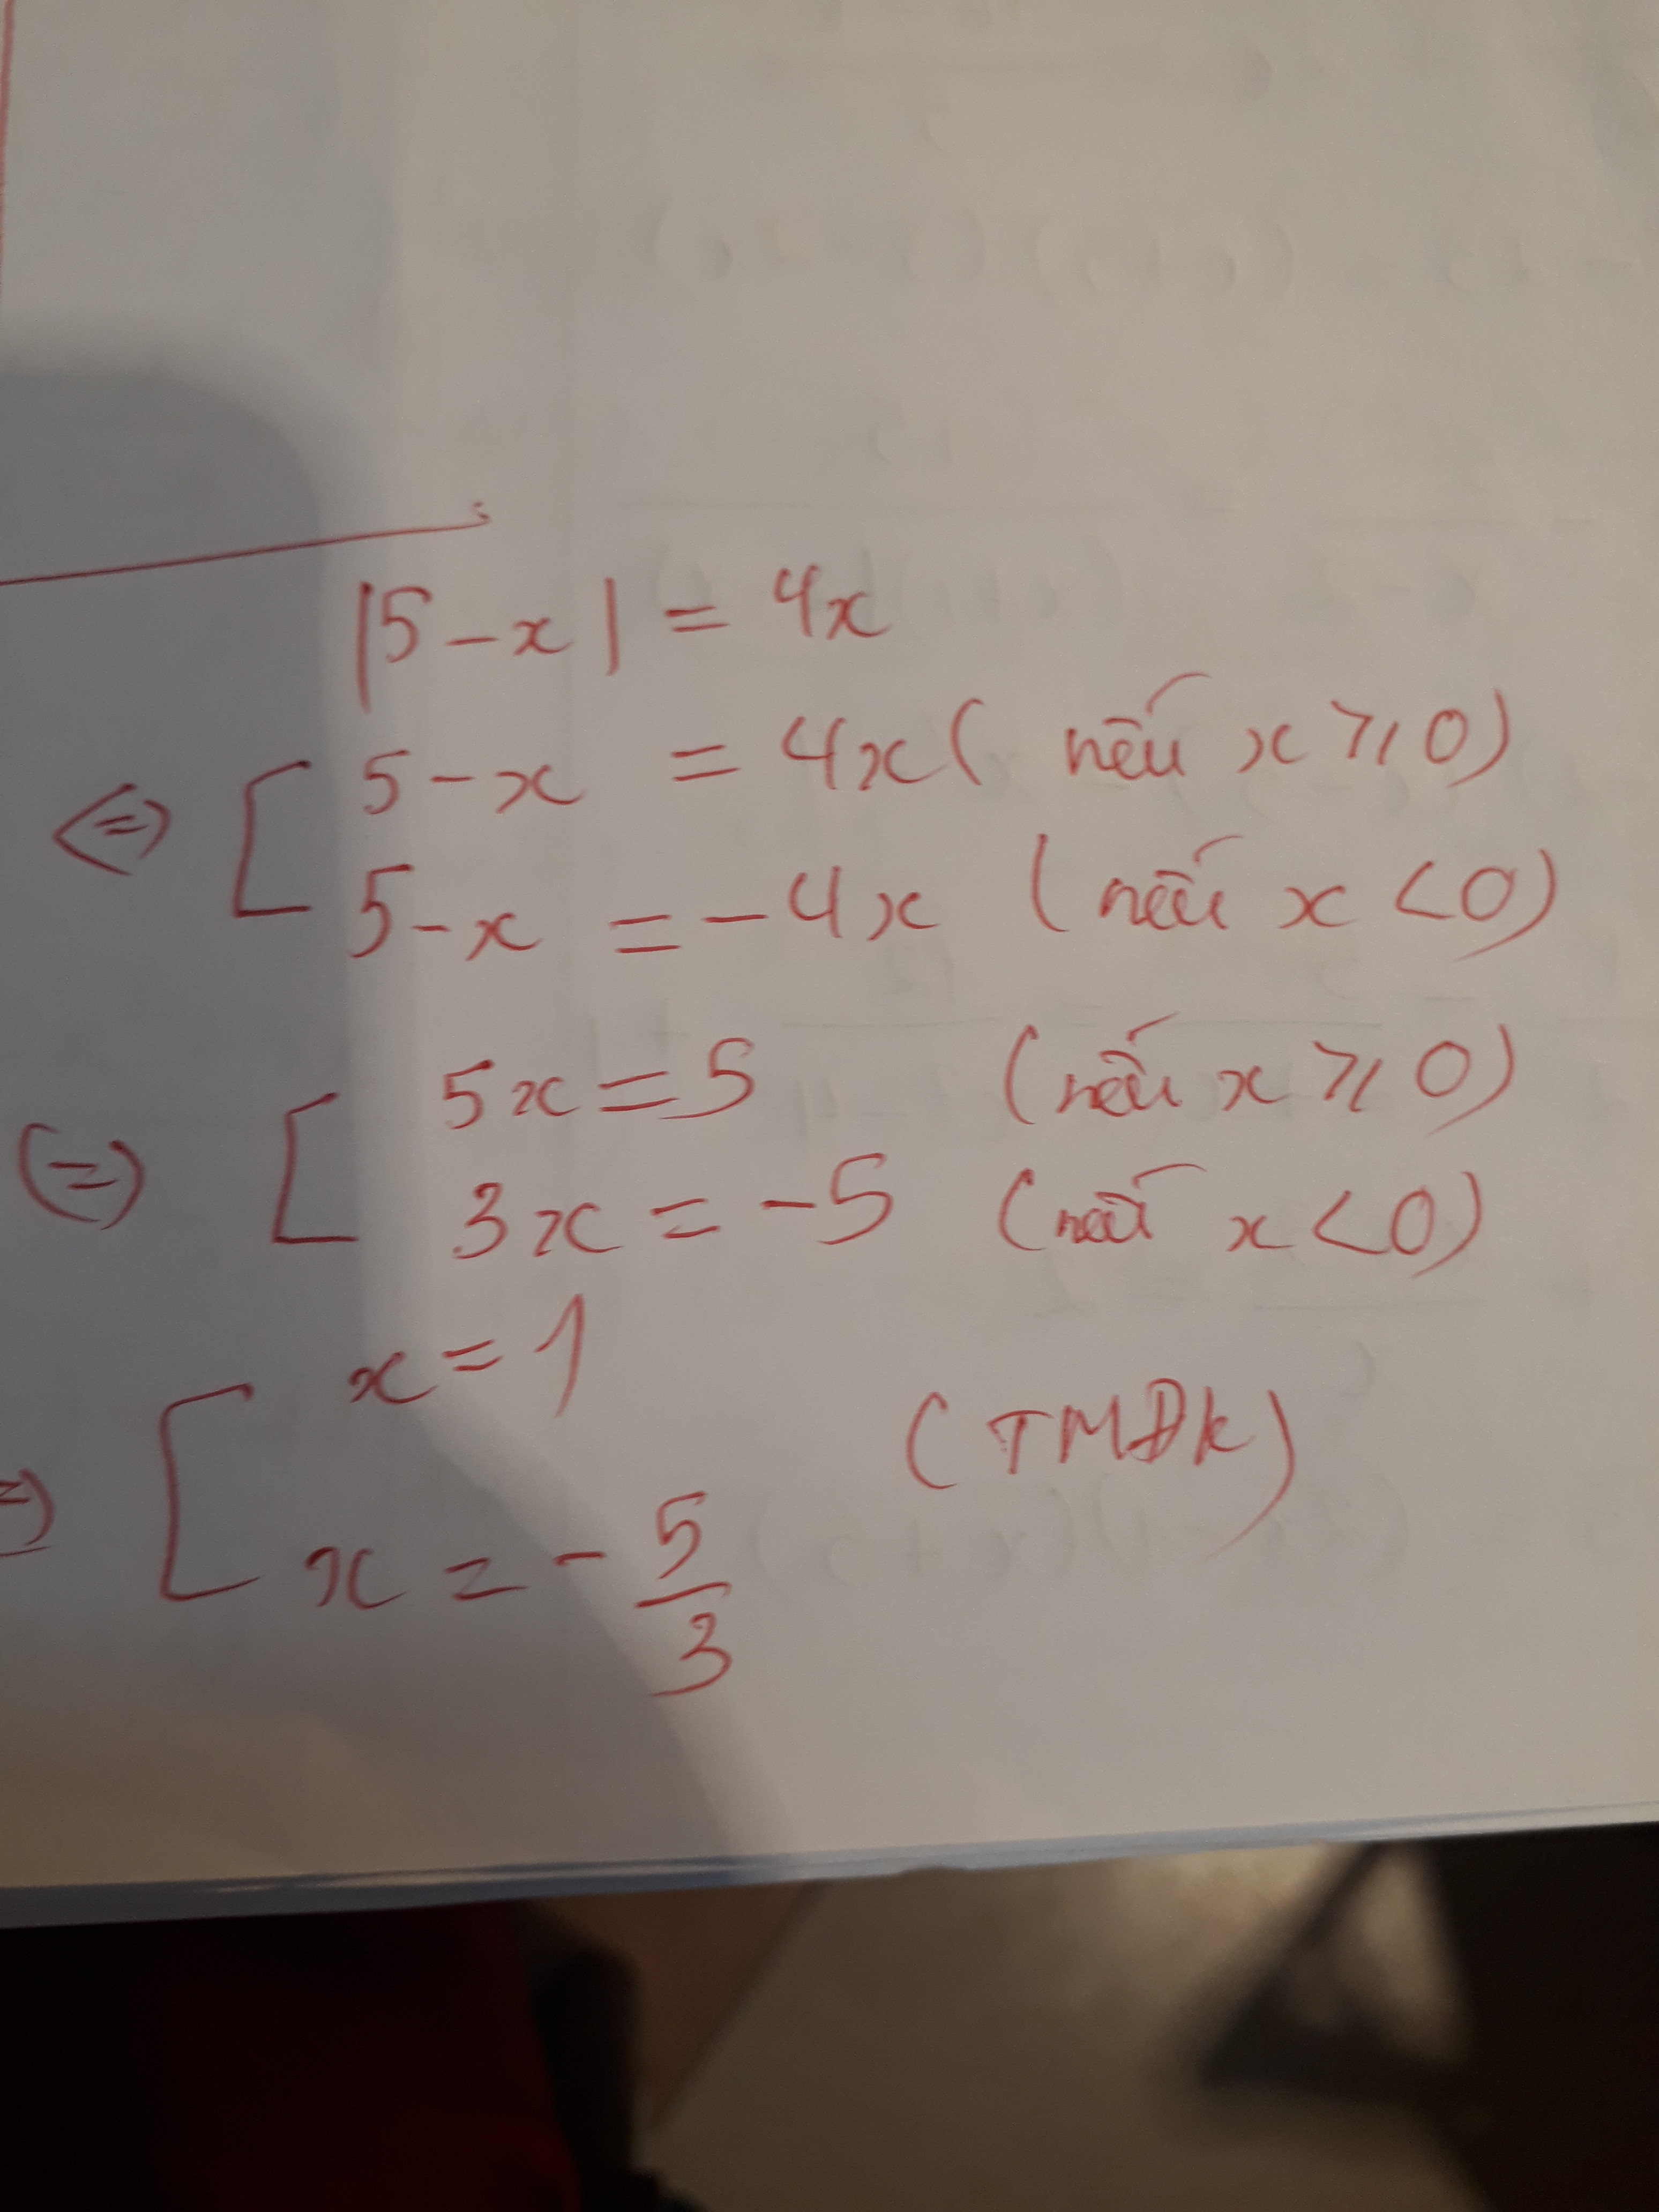 |5-x| = 4x
<=> [ 5-x = 4x ( nếu x ≥ 0)
5-x = -4x (nếu x < 0)
(=) [ 5x = 5 (nếu x ≥ 0)
3x = -5 (nếu x < 0)
x = 1
=) [ (TMĐK)
x = -5/3